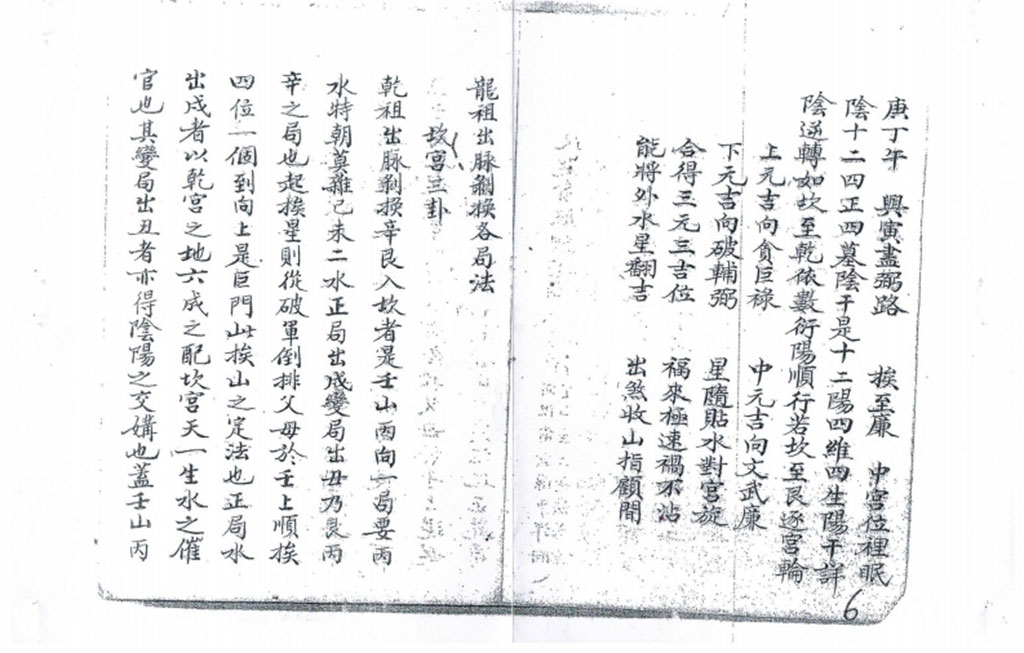 庚丁午　興寅盡弼路　挨至廉　中宮位裡眠
陰十二四正四墓陰干是十二陽四維四生陽干詳
陰逆轉如坎至乾依數衍陽順行若坎至艮逐宮輪
上元吉向貪巨祿　中元吉向文武廉
下元吉向破輔弼　星隨貼水對宮旋
合得三元三吉位　福來極速禍不沾
能將外水星翻吉　出煞收山指顧間
6
龍祖出脉剝換各局法
坎宮三卦
乾祖出脉剝換辛艮入坎者是壬山丙向一局要丙
水特朝莫雜己未二水正局出戍變局出丑乃艮丙
辛之局也起挨星則從破軍倒排父母於壬上順挨
四位一個到向上是巨門此挨山之定法也正局水
出戍者以乾宮之地六成之配坎宮天一生水之催
官也其變局出丑者亦得陰陽之交媾也蓋壬山丙